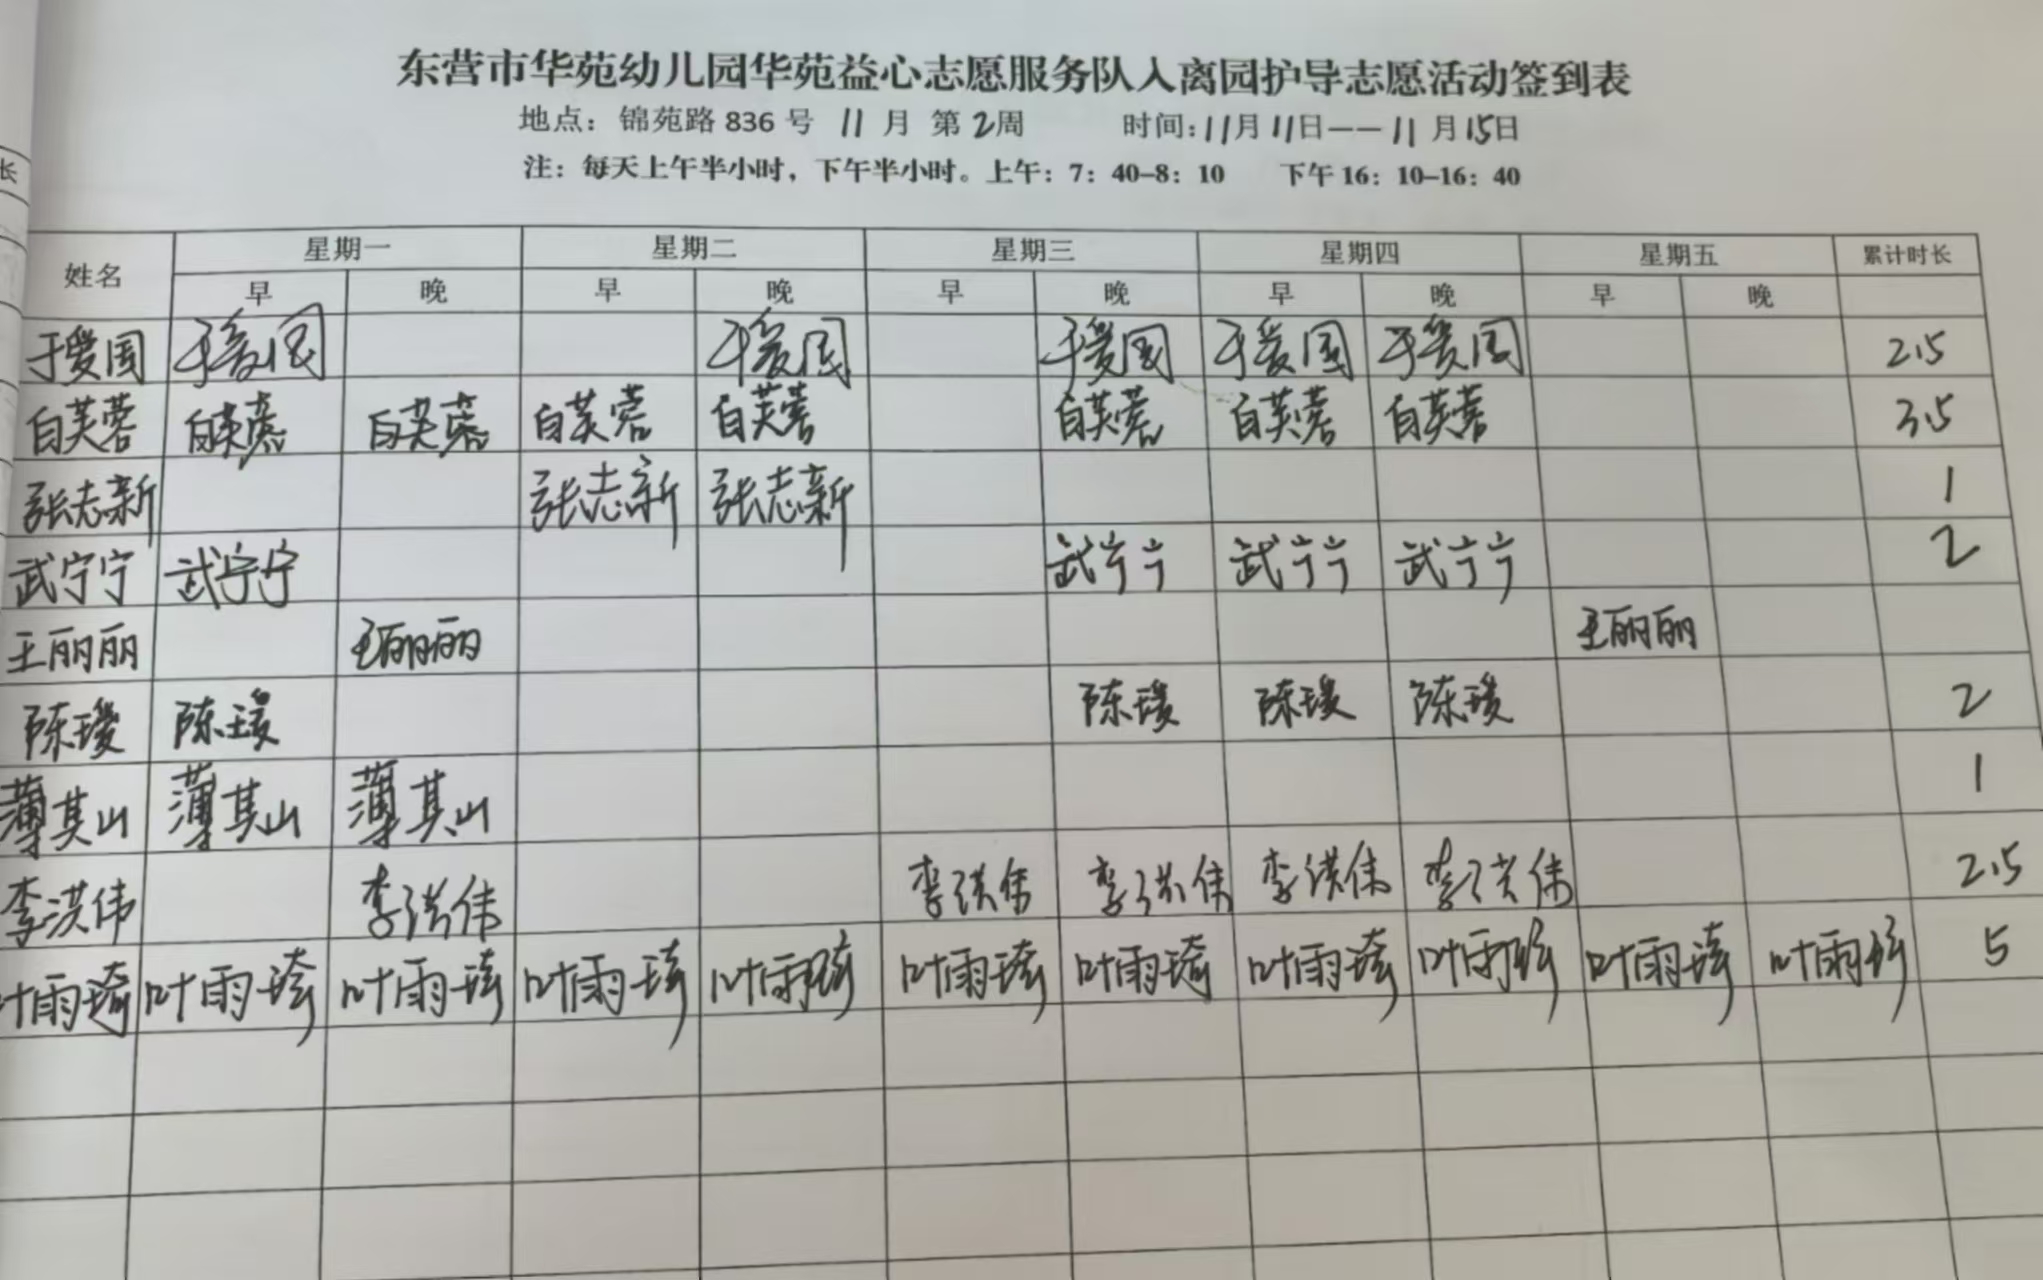 东营市华苑幼儿园华苑益心志愿服务队入离园护导志愿活动签到表
地点：锦苑路 836 号 11 月 第 2 周 时间：11月11日——11月15日
注：每天上午半小时，下午半小时。上午：7：40-8：10 下午 16：10-16：40
长
姓名 星期一 星期二 星期三 星期四 星期五 累计时长
早 晚 早 晚 早 晚 早 晚 早 晚
于爱国 于爱国 于爱国 于爱国 于爱国 于爱国 2.5
白芙蓉 白芙蓉 白芙蓉 白芙蓉 白芙蓉 白芙蓉 白芙蓉 白芙蓉 3.5
张志新 张志新 张志新 1
武宁宁 武宁宁 武宁宁 武宁宁 武宁宁 2
王丽丽 王丽丽 王丽丽
陈瑷 陈瑷 陈瑷 陈瑷 陈瑷 2
薄其山 薄其山 薄其山 1
李洪伟 李洪伟 李洪伟 李洪伟 李洪伟 李洪伟 2.5
叶雨琦 叶雨琦 叶雨琦 叶雨琦 叶雨琦 叶雨琦 叶雨琦 叶雨琦 叶雨琦 叶雨琦 叶雨琦 5